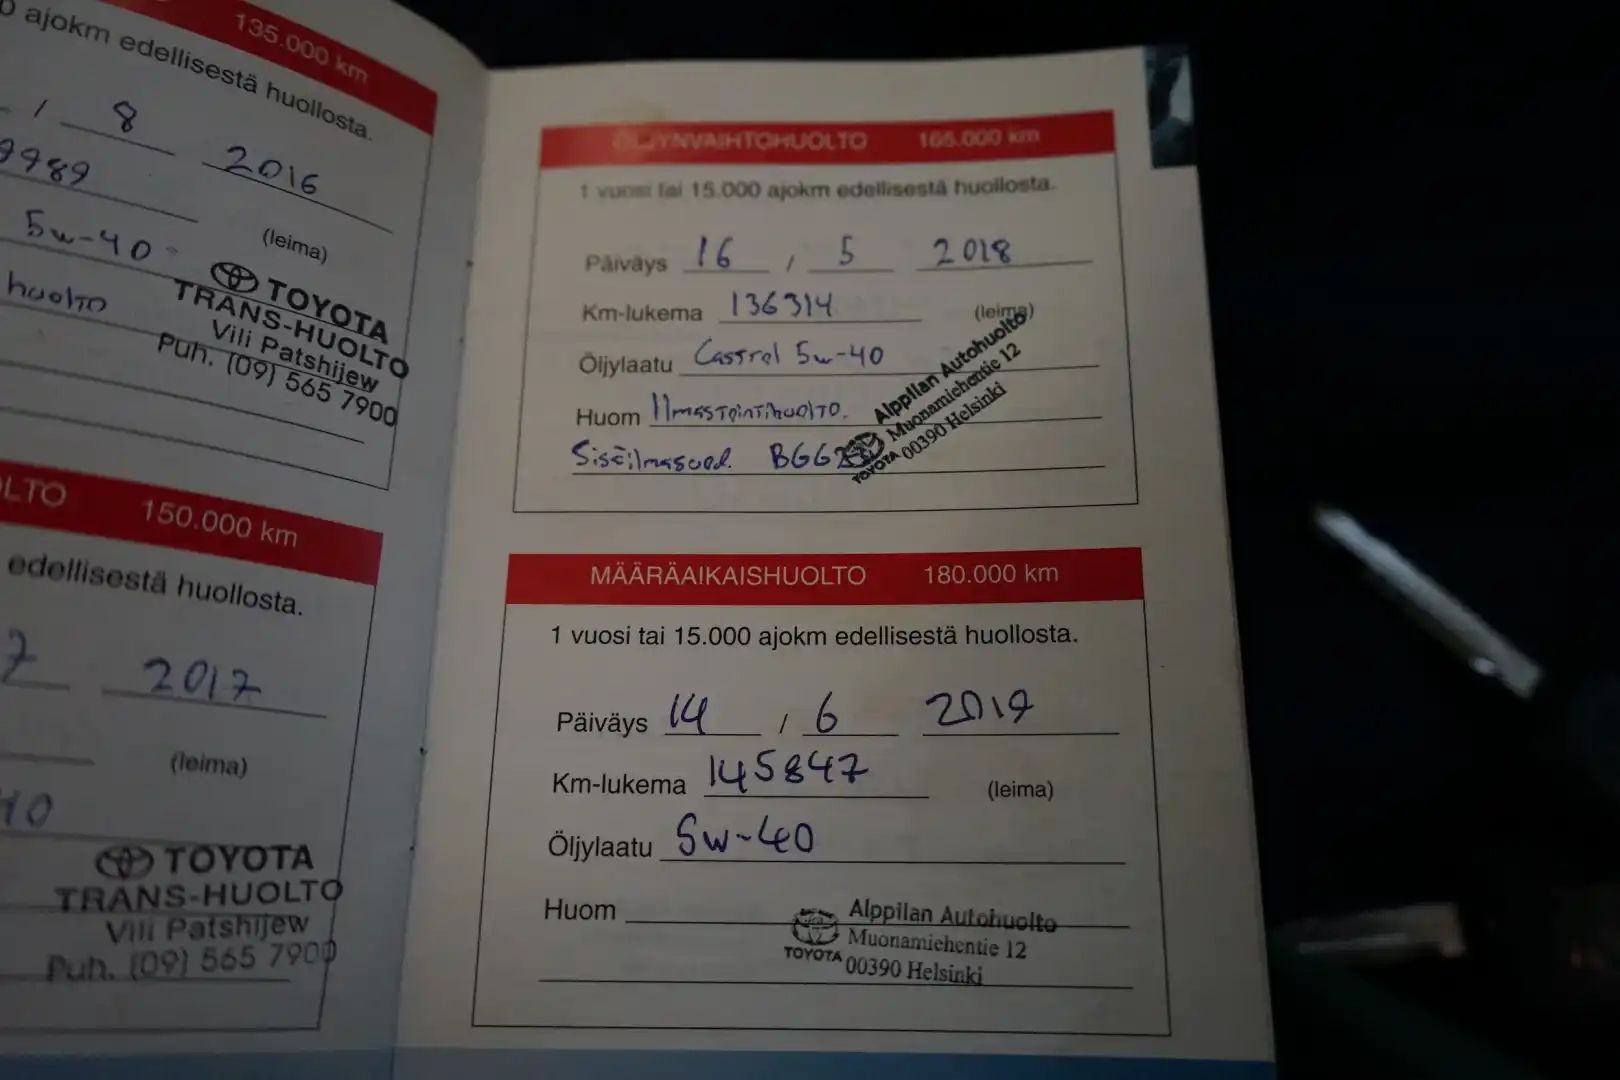 135.000 km
ajokm edellisestä huollosta.
/ 8 2016
9989
5w-40
(leima)
huolto
TOYOTA
TRANS-HUOLTO
Vili Patshijew
Puh. (09) 565 7900
150.000 km
edellisestä huollosta.
7 2017
(leima)
40
TOYOTA
TRANS-HUOLTO
Vili Patshijew
Puh. (09) 565 7900
ÖLJYNVAIHTOHUOLTO 165.000 km
1 vuosi tai 15.000 ajokm edellisestä huollosta.
Päiväys 16 / 5 2018
Km-lukema 136314 (leima)
Öljylaatu Castrol 5w-40
Huom Ilmastointihuolto.
Sisäilmasuod.
Alppilan Autohuolto
Muonamiehentie 12
TOYOTA 00390 Helsinki
MÄÄRÄAIKAISHUOLTO 180.000 km
1 vuosi tai 15.000 ajokm edellisestä huollosta.
Päiväys 14 / 6 2019
Km-lukema 145847 (leima)
Öljylaatu 5w-40
Huom
Alppilan Autohuolto
Muonamiehentie 12
TOYOTA 00390 Helsinki